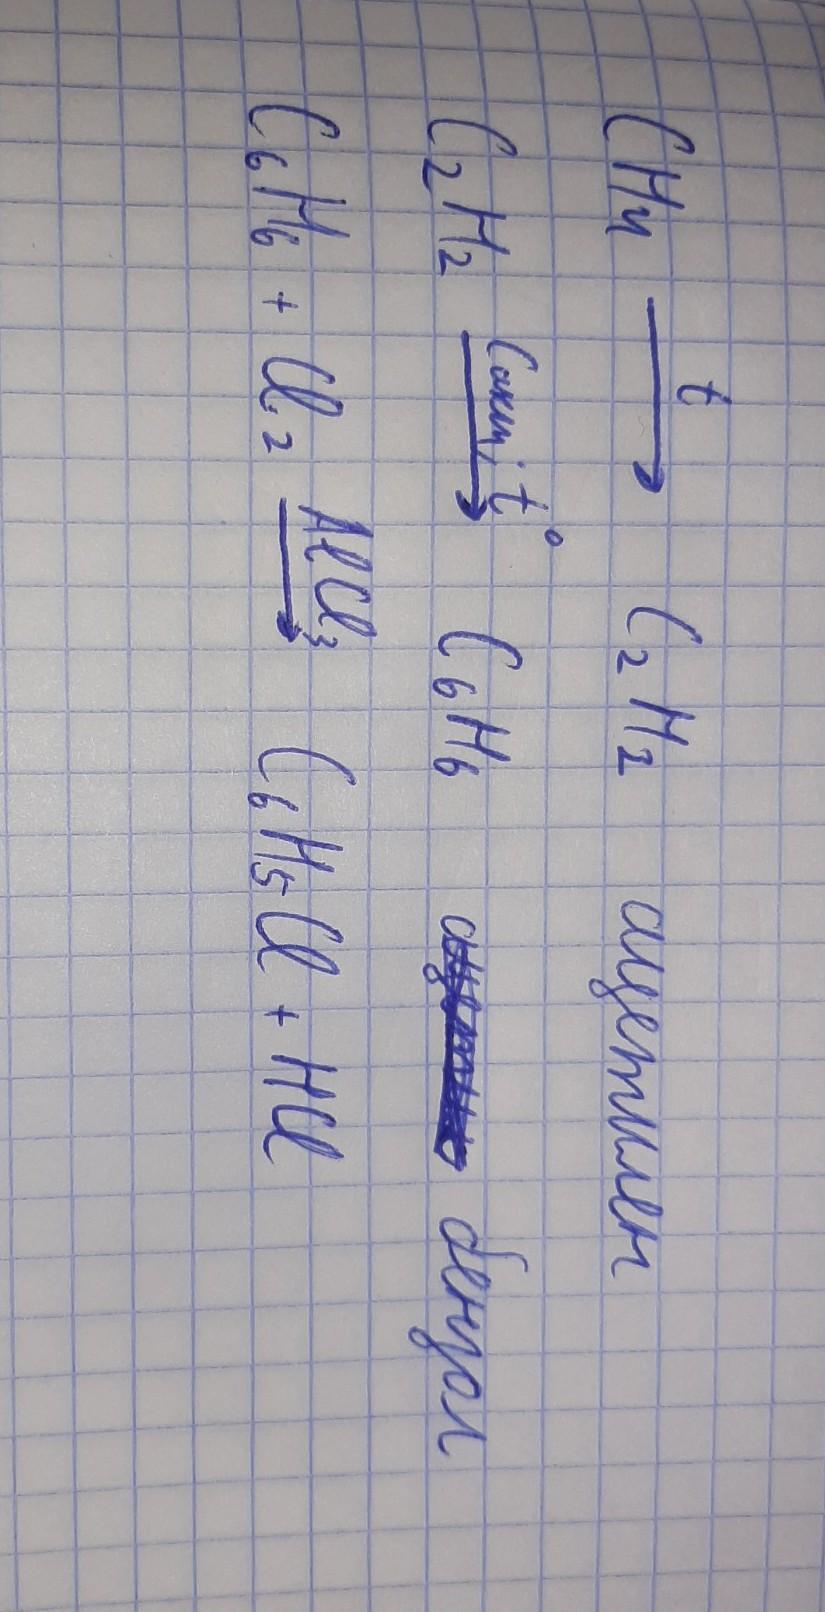 CH4 t → C2H2 ацетилен
C2H2 Cакт, t° → C6H6 бензол
C6H6 + Cl2 AlCl3 → C6H5Cl + HCl